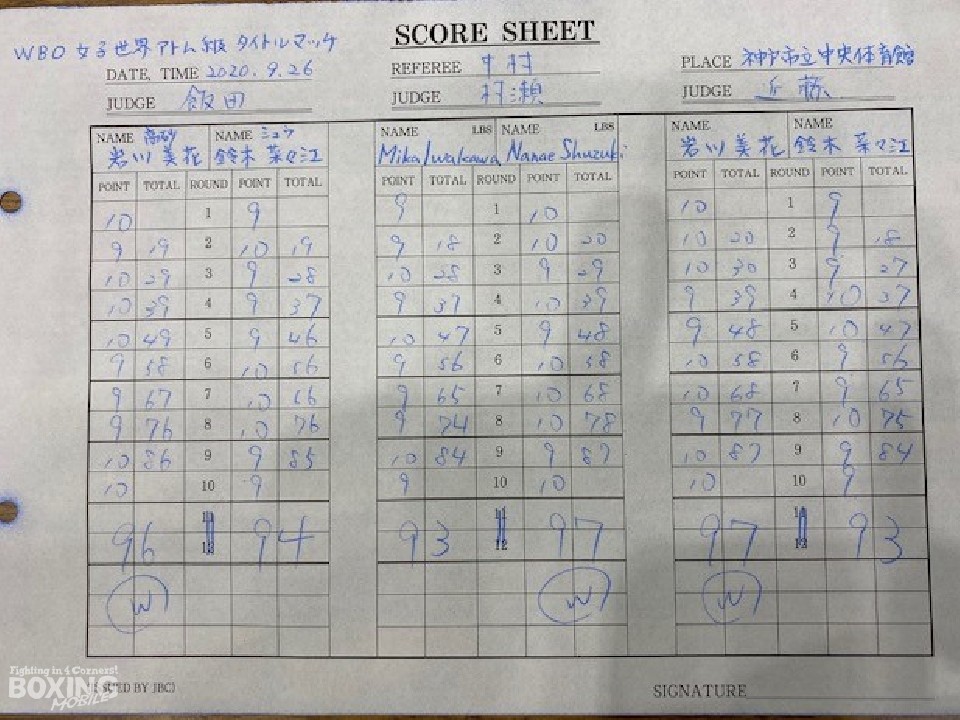 SCORE SHEET
WBO 女子世界アトム級 タイトルマッチ
DATE, TIME 2020. 9. 26
REFEREE 中村
PLACE 神戸市立中央体育館
JUDGE 飯田
JUDGE 村瀬
JUDGE 近藤
NAME 高砂 NAME ミュウ
岩川 美花 鈴木 菜々江
NAME LBS NAME LBS
Mika Iwakawa Nanae Shuzuki
NAME NAME
岩川 美花 鈴木 菜々江
POINT TOTAL ROUND POINT TOTAL POINT TOTAL ROUND POINT TOTAL POINT TOTAL ROUND POINT TOTAL
10 1 9 9 1 10 10 1 9
9 19 2 10 19 9 18 2 10 20 10 20 2 9 18
10 29 3 9 28 10 28 3 9 29 10 30 3 9 27
10 39 4 9 37 9 37 4 10 39 9 39 4 10 37
10 49 5 9 46 10 47 5 9 48 9 48 5 10 47
9 58 6 10 56 9 56 6 10 58 10 58 6 9 56
9 67 7 10 66 9 65 7 10 68 10 68 7 9 65
9 76 8 10 76 9 74 8 10 78 9 77 8 10 75
10 86 9 9 85 10 84 9 9 87 10 87 9 9 84
10 10 9 9 10 10 10 10 9
11 11 11
96 12 94 93 12 97 97 12 93
W W W
Fighting in 4 Corners!
BOXING
MOBILE
ISSUED BY JBC)
SIGNATURE